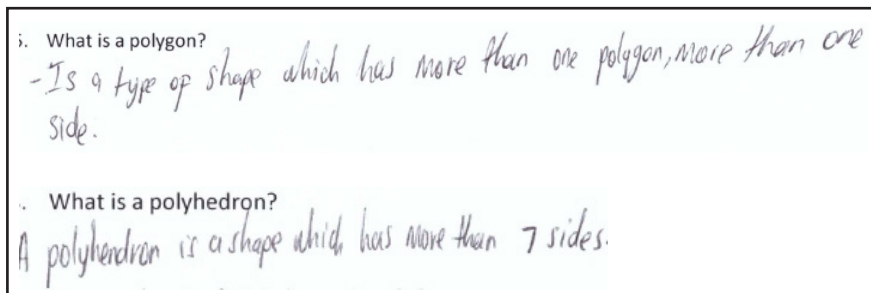 5. What is a polygon?
- Is a type of shape which has more than one polygon, more than one
side.
. What is a polyhedron?
A polyhendron is a shape which has more than 7 sides.